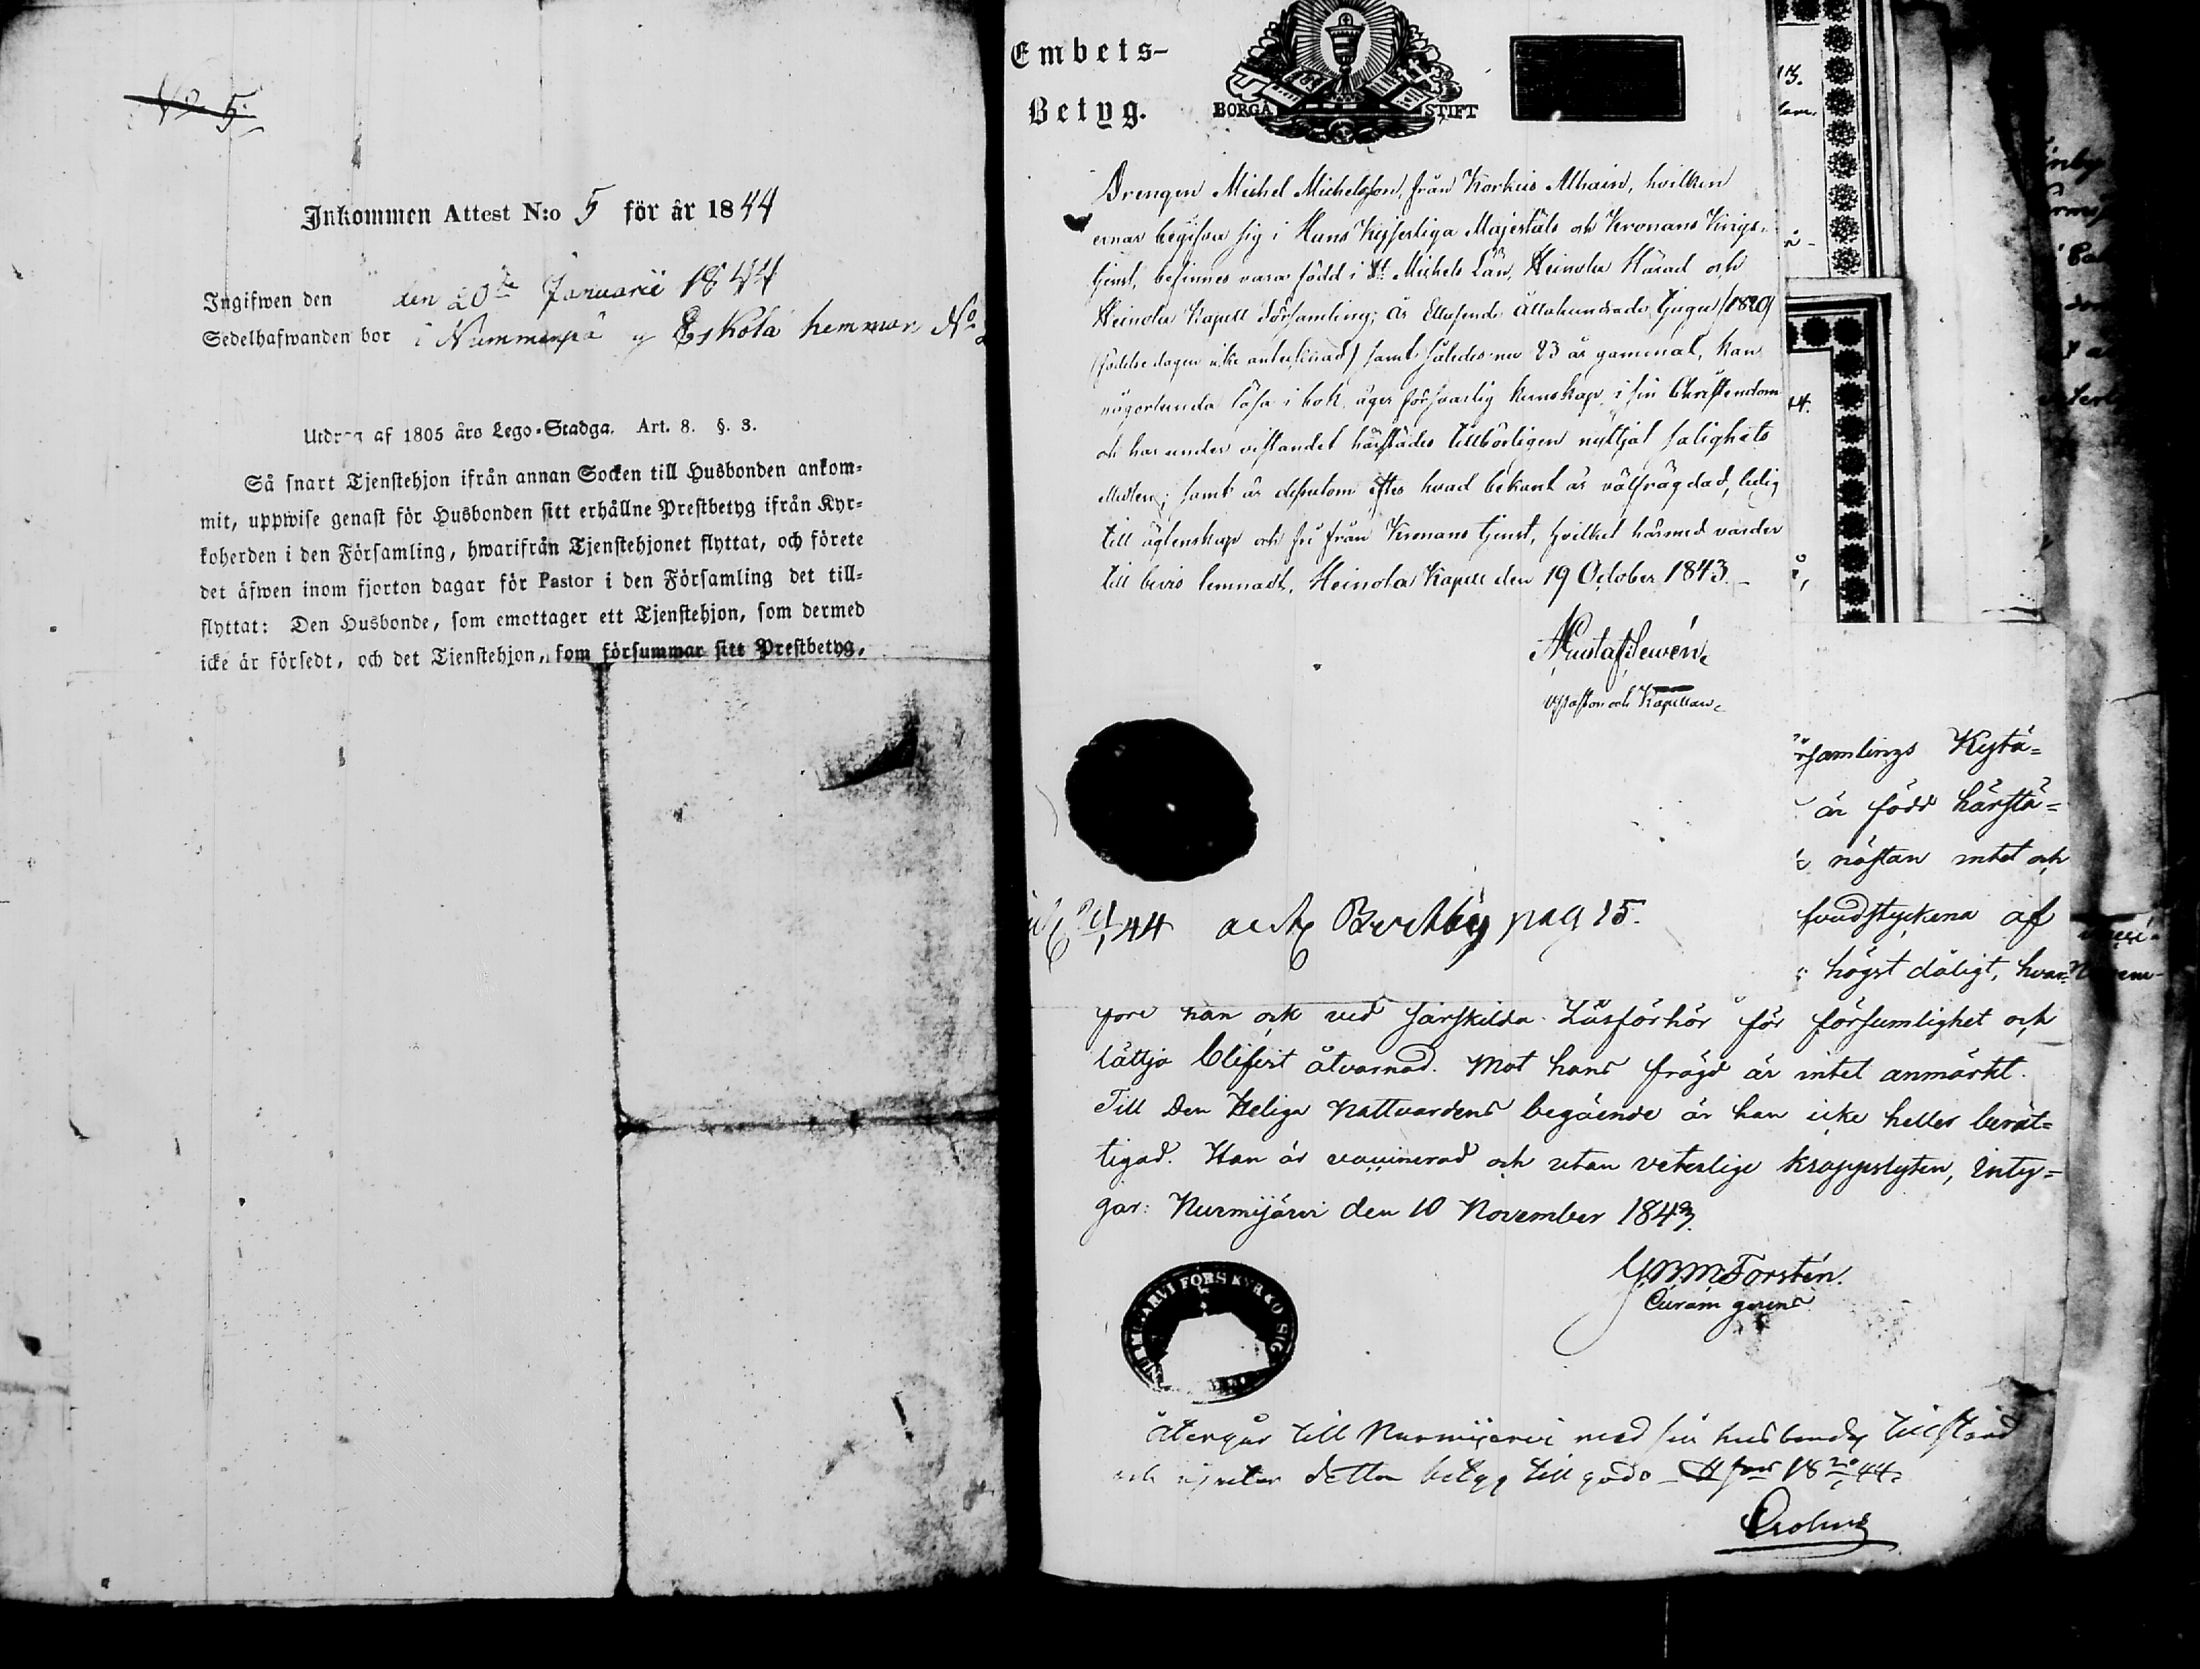 No 5.
Inkommen Attest N:o 5 för år 1844
Ingifwen den den 20de Januarii 1844
Sedelhafwanden bor i Nummenpä Eskola hemman No
Utdrag af 1805 års Lego-Stadga. Art. 8. §. 3.
Så snart Tjenstehjon ifrån annan Socken till Husbonden ankom-
mit, uppwise genast för Husbonden sitt erhållne Prestbetyg ifrån Kyr-
koherden i den Församling, hwarifrån Tjenstehjonet flyttat, och förete
det äfwen inom fjorton dagar för Pastor i den Församling det till-
flyttat: Den Husbonde, som emottager ett Tjenstehjon, som dermed
icke är försedt, och det Tjenstehjon, som försummar sitt Prestbetyg,
Embets-
Betyg.
BORGÅ STIFT
Drengen Michel Michelsson, från Korkeis Alhain, hvilken
ernar begifva sig i Hans Kejserliga Majestäts och Kronans Krigs-
tjenst, befinnes vara född i St Michels Län, Heinola Härad och
Heinola Kapell Församling; år Ettusende Åttahundrade tjugu /1820/
(födelse dagen icke antecknad) samt således nu 23 år gammal, kan
någorlunda läsa i bok, äger försvarlig kunskap i sin Christendom
och har under vistandet härstädes tillbörligen nyttjat salighets
Medlen; samt är dessutom efter hvad bekant är välfrägdad, ledig
till ägtenskap och fri från Kronans tjenst, hvilket härmed varder
till bevis lemnadt. Heinola Kapell den 19 October 1843.
V Pastor och Kapellan
44 pag 15.
församlings Kytä-
är född härstä-
nästan intet och
hvudstyckena af
högst dåligt, hvar-
fore han ock vid särskilda Läsförhör för försumlighet och
lättja blifvit åtvarnad. Mot hans frägd är intet anmärkt.
Till Den Heliga Nattvardens begående är han icke heller berät-
tigad. Han är vaccinerad och utan veterlige kroppslyten, Inty-
gar: Nurmijärvi den 10 November 1843.
G.M.M Forstén.
Curam gerens
NURMIJARVI FÖRS KYRKO SIG
Återgår till Nurmijärvi med sin husbondes tillstånd
och njuter detta betyg till godo